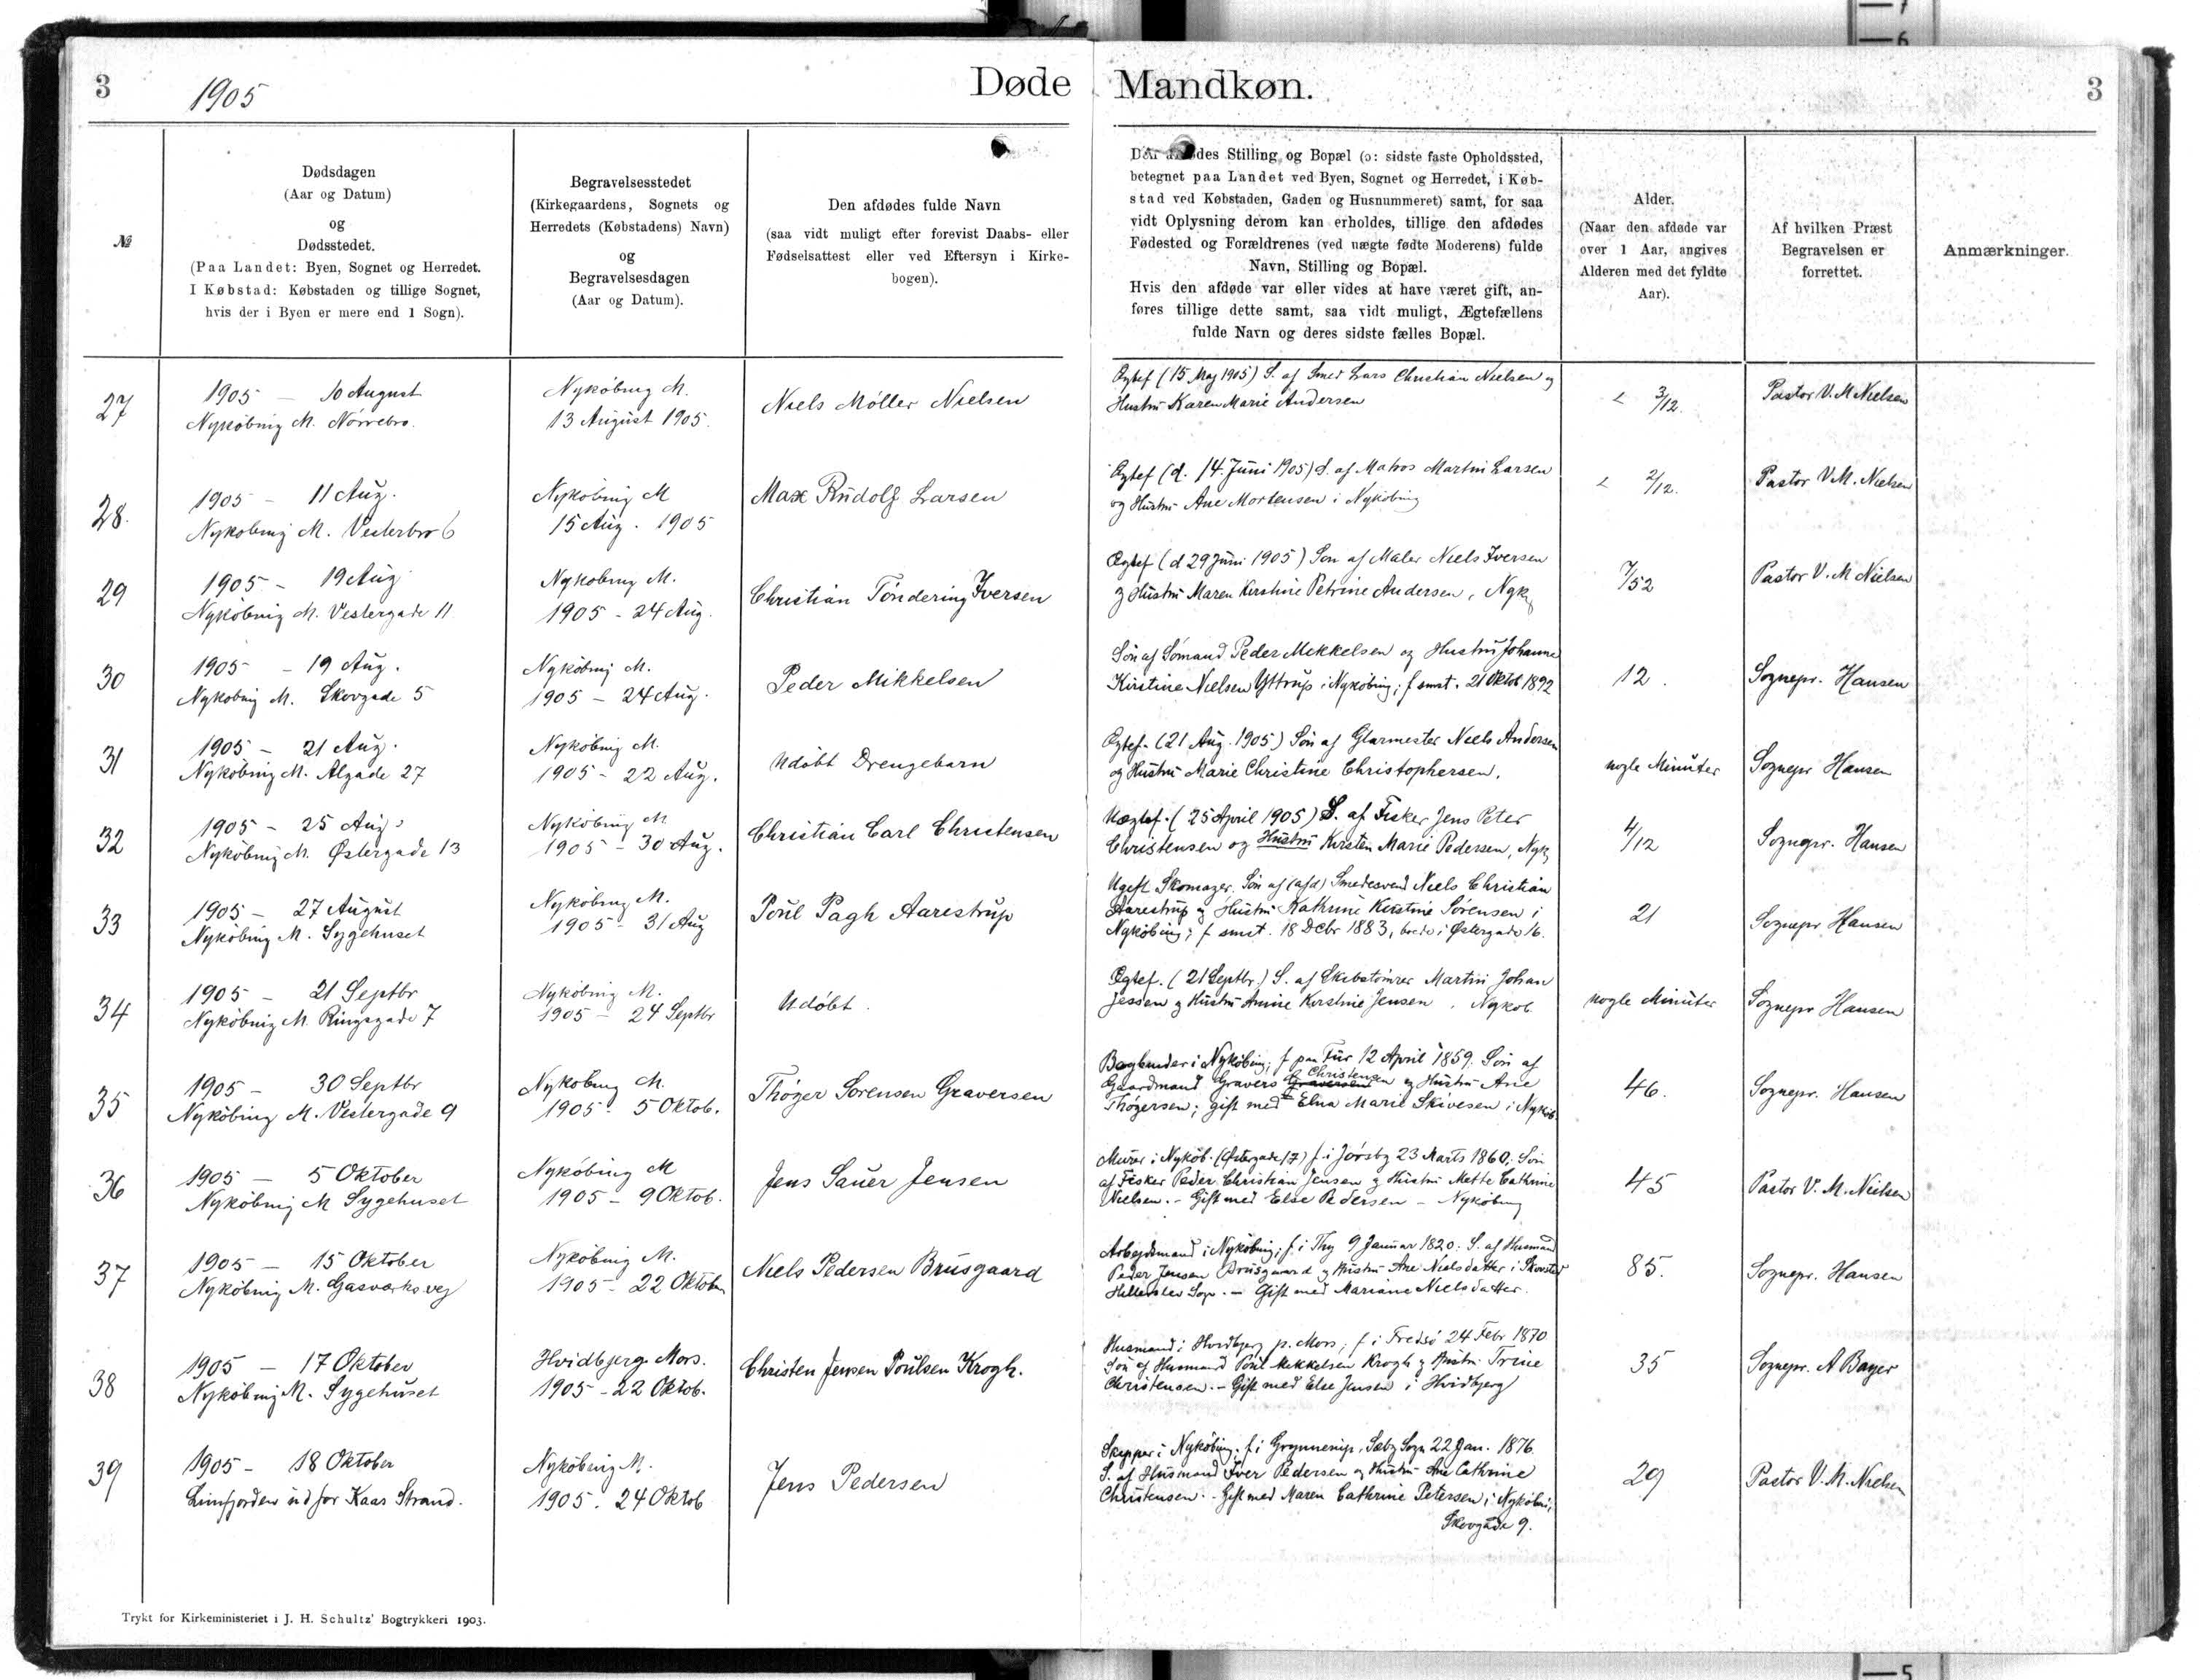 3
1905
Døde
Mandkøn.
3
№
Dødsdagen
(Aar og Datum)
og
Dødsstedet.
(Paa Landet: Byen, Sognet og Herredet.
I Købstad: Købstaden og tillige Sognet,
hvis der i Byen er mere end 1 Sogn).
Begravelsesstedet
(Kirkegaardens, Sognets og
Herredets (Købstadens) Navn)
og
Begravelsesdagen
(Aar og Datum).
Den afdødes fulde Navn
(saa vidt muligt efter forevist Daabs- eller
Fødselsattest eller ved Eftersyn i Kirke-
bogen).
des Stilling og Bopæl (ɔ: sidste faste Opholdssted,
betegnet paa Landet ved Byen, Sognet og Herredet, i Køb-
stad ved Købstaden, Gaden og Husnummeret) samt, for saa
vidt Oplysning derom kan erholdes, tillige den afdødes
Fødested og Forældrenes (ved uægte fødte Moderens) fulde
Navn, Stilling og Bopæl.
Hvis den afdøde var eller vides at have været gift, an-
føres tillige dette samt, saa vidt muligt, Ægtefællens
fulde Navn og deres sidste fælles Bopæl.
Alder.
(Naar den afdøde var
over 1 Aar, angives
Alderen med det fyldte
Aar).
Af hvilken Præst
Begravelsen er
forrettet.
Anmærkninger.
27
1905 – 10 August
Nykøbing M. Nørrebro.
Nykøbing M.
13 August 1905.
Niels Møller Nielsen
Ægtef (15 Maj 1905) S. af Smed Lars Christian Nielsen og
Hustru Karen Marie Andersen
3/12.
Pastor V. M Nielsen
28.
1905 – 11 Aug.
Nykøbing M. Vesterbro 6
Nykøbing M
15 Aug. 1905
Max Rudolf Larsen
Ægtef (d. 14. Juni 1905) S. af Matros Martin Larsen
og Hustru Ane Mortensen i Nykøbing
2/12.
Pastor V. M. Nielsen
29
1905 – 19 Aug
Nykøbing M. Vestergade 11
Nykøbing M.
1905 – 24 Aug.
Christian Töndering Iversen
Ægtef (d 29 Juni 1905) Søn af Maler Niels Iversen
og Hustru Maren Kirstine Petrine Andersen, Nyk
7/52
Pastor V. M Nielsen
30
1905 – 19 Aug.
Nykøbing M. Skovgade 5
Nykøbing M.
1905 – 24 Aug.
Peder Mikkelsen
Søn af Sømand Peder Mikkelsen og Hustru Johanne
Kirstine Nielsen Yttrup i Nykøbing; f smst. 21 Oktob 1892
12.
Sognepr. Hansen
31
1905 – 21 Aug.
Nykøbing M. Algade 27
Nykøbing M.
1905 – 22 Aug.
Udøbt Drengebarn
Ægtef. (21 Aug. 1905) Søn af Glarmester Niels Andersen
og Hustru Marie Christine Christophersen.
nogle Minuter
Sognepr Hansen
32
1905 – 25 Aug.
Nykøbing M. Østergade 13
Nykøbing M
1905 – 30 Aug.
Christian Carl Christensen
Uægtef. (25 April 1905) S. af Fisker Jens Peter
Christensen og Hustru Kirsten Marie Pedersen, Nyk
4/12
Sognepr. Hansen
33
1905 – 27 August
Nykøbing M. Sygehuset
Nykøbing M.
1905 – 31 Aug
Poul Pagh Aarestrup
Ugift Skomager. Søn af (afd) Smedesvend Niels Christian
Aarestrup og Hustru Kathrine Kirstine Sørensen i
Nykøbing; f smst. 18 Dcbr 1883, boede i Østergade 16.
21
Sognepr Hansen
34
1905 – 21 Septbr
Nykøbing M. Ringgade 7
Nykøbing M.
1905 – 24 Septbr
Udøbt.
Ægtef. (21 Septbr.) S. af Skibstømrer Martin Johan
Jessen og Hustru Amine Kirstine Jensen. Nykøb
nogle Minuter
Sognepr Hansen
35
1905 – 30 Septbr
Nykøbing M. Vestergade 9
Nykøbing M.
1905 – 5 Oktob.
Thøger Sørensen Graversen
Bogbinder i Nykøbing; f paa Fur 12 April 1859. Søn af
Gaardmand Gravers Graversen Christensen og Hustru Ane
Thøgersen; gift med Elna Marie Skivesen i Nykøb.
46.
Sognepr. Hansen
36
1905 – 5 Oktober
Nykøbing M Sygehuset
Nykøbing M
1905 – 9 Oktob.
Jens Sauer Jensen
Murer i Nykøb. (Østergade 17) f. i Jørsby 23 Marts 1860; Søn
af Fisker Peder Christian Jensen og Hustru Mette Cathrine
Nielsen. – Gift med Else Pedersen – Nykøbing
45
Pastor V. M. Nielsen
37
1905 – 15 Oktober
Nykøbing M. Gasværksvej
Nykøbing M.
1905 – 22 Oktober
Niels Pedersen Brusgaard
Arbejdsmand i Nykøbing; f. i Thy 9 Januar 1820: S. af Husmand
Peder Jensen Brusgaard og Hustru Ane Nielsdatter i Skovsted
Hillerslev Sogn. – Gift med Mariane Nielsdatter.
85.
Sognepr. Hansen
38
1905 – 17 Oktober
Nykøbing M. Sygehuset
Hvidbjerg Mors.
1905 – 22 Oktob.
Christen Jensen Poulsen Krogh.
Husmand i Hvidbjerg p. Mors; f. i Fredsø 24 Febr 1870
Søn af Husmand Poul Mikkelsen Krogh og Hustru Trine
Christensen. – Gift med Else Jensen i Hvidbjerg
35
Sognepr. A Bayer
39
1905 – 18 Oktober
Limfjorden ud for Kaas Strand.
Nykøbing M.
1905. 24 Oktob
Jens Pedersen
Skipper i Nykøbing. f. i Grynnerup, Sæby Sogn 22 Jan. 1876.
S. af Husmand Iver Pedersen og Hustru Ane Cathrine
Christensen. – Gift med Maren Cathrine Petersen i Nykøbing,
Skovgade 9.
29
Pastor V. M. Nielsen
Trykt for Kirkeministeriet i J. H. Schultz' Bogtrykkeri 1903.